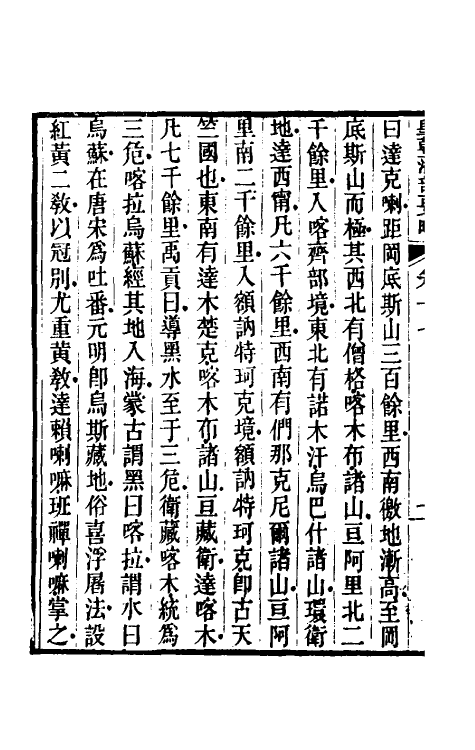 曰達克喇距岡底斯山三百餘里西南徼地漸高至岡
底斯山而極其西北有僧格喀木布諸山亘阿里北二
千餘里入喀齊部境東北有諾木汗烏巴什諸山環衛
地達西南凡六千餘里西南有們那克尼爾諸山亘阿
里南二千餘里入額訥特珂克境額訥特珂克卽古天
竺國也東南有達木楚克喀木布諸山亘藏衛達喀木
凡七千餘里禹貢曰導黑水至于三危衛藏喀木統爲
三危喀拉烏蘇經其地入海蒙古謂黑曰喀拉謂水曰
烏蘇在唐宋爲吐番元明卽烏斯藏地俗喜浮屠法設
紅黃二敎以冠別尤重黃敎達賴喇嘛班禪喇嘛掌之